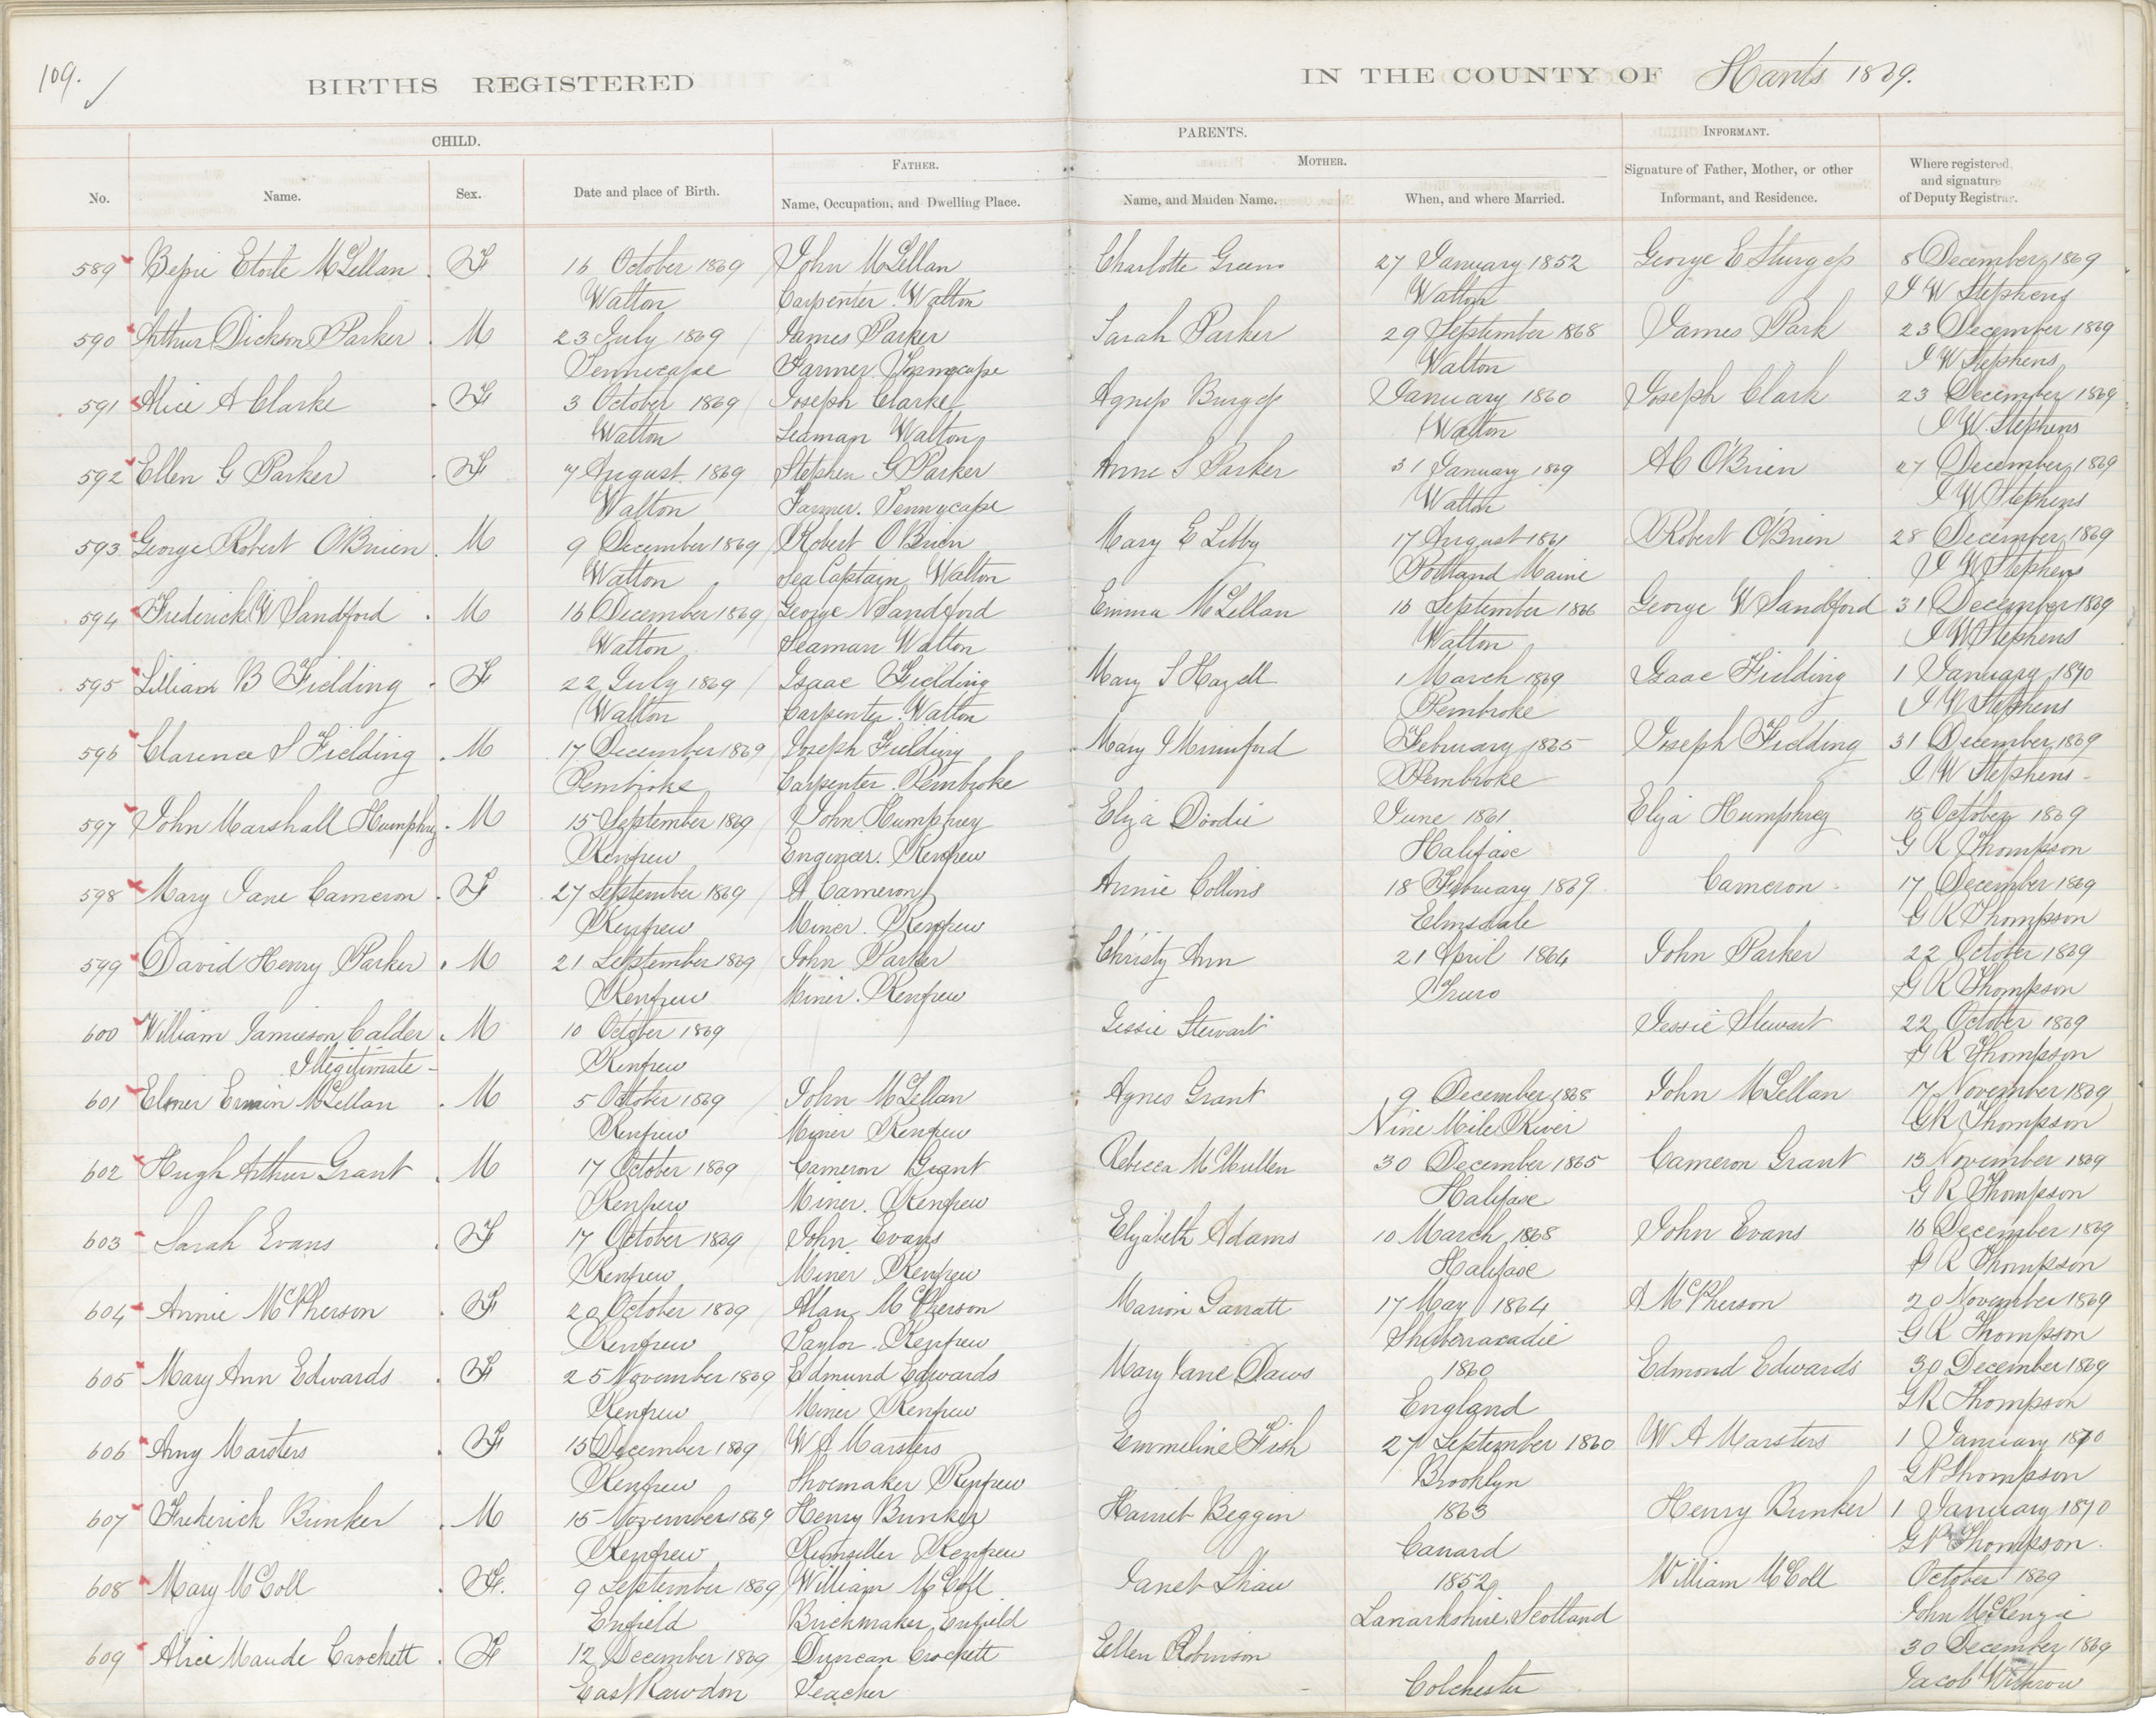 109.
BIRTHS REGISTERED IN THE COUNTY OF Hants 1869.
CHILD. PARENTS. INFORMANT.
FATHER. MOTHER.
No. Name. Sex. Date and place of Birth. Name, Occupation, and Dwelling Place. Name, and Maiden Name. When, and where Married. Signature of Father, Mother, or other Informant, and Residence. Where registered, and signature of Deputy Registrar.
589 Bessie Etoile McLellan F 16 October 1869 John McLellan Charlotte Green 27 January 1852 George E Sturgess 8 December 1869
Walton Carpenter. Walton Walton I W Stephens
590 Arthur Dickson Parker M 23 July 1869 James Parker Sarah Parker 29 September 1868 James Park 23 December 1869
Tennecape Farmer Walton I W Stephens
591 Alice A Clarke F 3 October 1869 Joseph Clarke Agness Burgess January 1860 Joseph Clark 23 December 1869
Walton Seaman Walton Walton I W Stephens
592 Ellen G Parker F 7 August 1869 Stephen G Parker Anne S Parker 31 January 1869 A C O'Brien 27 December 1869
Walton Farmer. Tennycape Walton I W Stephens
593 George Robert O'Brien M 9 December 1869 Robert O'Brien Mary E Libby 17 August Robert O'Brien 28 December 1869
Walton Sea Captain, Walton Portland Maine I W Stephens
594 Frederick W Sandford M 16 December 1869 George N Sandford Emma McLellan 16 September 1866 George W Sandford 31 December 1869
Walton Seaman Walton Walton I W Stephens
595 Lillian B Fielding F 22 July 1869 Isaac Fielding Mary S Hazell 1 March 1869 Isaac Fielding 1 January 1870
Walton Carpenter. Walton Pembroke I W Stephens
596 Clarence S Fielding M 17 December 1869 Joseph Fielding Mary J Mumford February 1865 Joseph Fielding 31 December 1869
Pembroke Carpenter. Pembroke Pembroke I W Stephens
597 John Marshall Humphry M 15 September 1869 John Humphrey Eliza Doodie June 1861 Eliza Humphrey 15 October 1869
Renfrew Engineer. Renfrew Halifax G R Thompson
598 Mary Jane Cameron F 27 September 1869 A Cameron Annie Collins 18 February 1869 Cameron 17 December 1869
Renfrew Miner. Renfrew Elmsdale G R Thompson
599 David Henry Parker M 21 September 1869 John Parker Christy Ann 21 April 1864 John Parker 22 October 1869
Renfrew Miner. Renfrew Truro G R Thompson
600 William Jamieson Calder M 10 October 1869 Jessie Stewart Jessie Stewart 22 October 1869
Illegitimate Renfrew G R Thompson
601 Elmer McLellan M 5 October 1869 John McLellan Agnes Grant 9 December 1868 John McLellan 17 November 1869
Renfrew Miner Renfrew Nine Mile River G R Thompson
602 Hugh Arthur Grant M 17 October 1869 Cameron Grant Rebecca McMullen 30 December 1865 Cameron Grant 13 November 1869
Renfrew Miner. Renfrew Halifax G R Thompson
603 Sarah Evans F 17 October 1869 John Evans Elizabeth Adams 10 March 1868 John Evans 16 December 1869
Renfrew Miner Renfrew Halifax G R Thompson
604 Annie McPherson F 20 October 1869 Alan McPherson Marion Garratt 17 May 1864 A McPherson 20 November 1869
Renfrew Taylor. Renfrew Shubenacadie G R Thompson
605 Mary Ann Edwards F 25 November 1869 Edmund Edwards Mary Jane Daws 1860 Edmond Edwards 30 December 1869
Renfrew Miner Renfrew England G R Thompson
606 Amy Marsters F 15 December 1869 W A Marsters Emmeline Fish 27 September 1860 W A Marsters 1 January 1870
Renfrew Shoemaker Renfrew Brooklyn G R Thompson
607 Frederick Bunker M 15 November 1869 Henry Bunker Harriet Beggin 1863 Henry Bunker 1 January 1870
Renfrew Rumseller Renfrew Canard G R Thompson
608 Mary McColl F. 9 September 1869 William McColl Janet Shaw 1852 William McColl October 1869
Enfield Brickmaker, Enfield Lanarkshire, Scotland John McKenzie
609 Alice Maude Crockett F 12 December 1869 Duncan Crockett Ellen Robinson 30 December 1869
East Rawdon Teacher Colchester Jacob Withrow